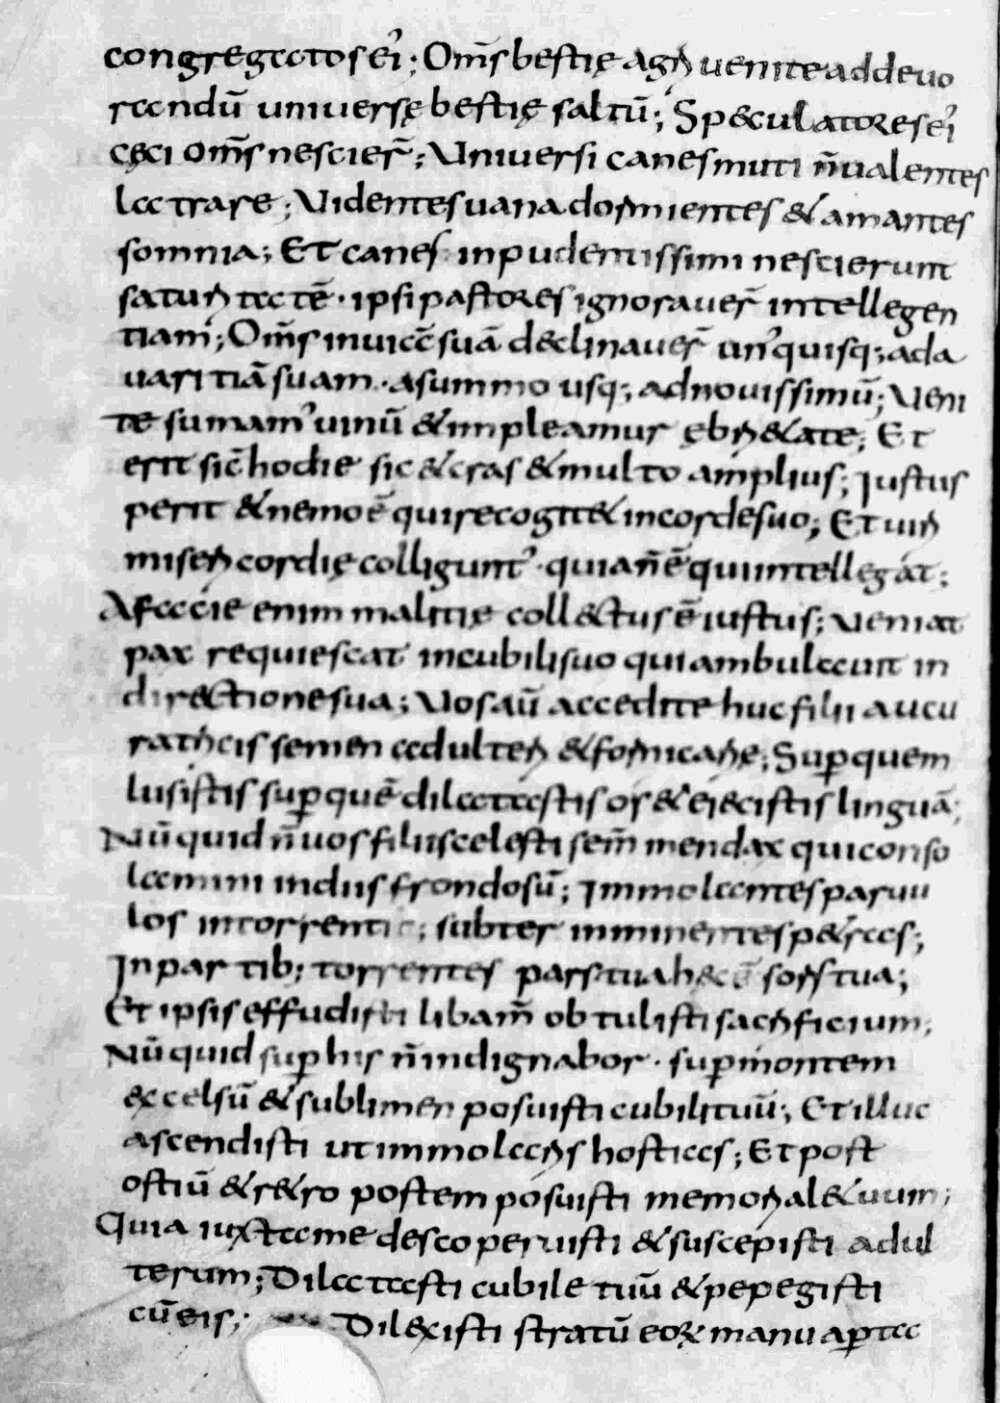 congregatos ei'; Om̄s bestię agri uenite addeuo
randū uniuersę bestię saltū; Speculatores ei'
cęci om̄s nescier̄; Uniuersi canes muti n̄ualentes
latrare; Uidentes uana dormientes & amantes
somnia; Et canes inpudentissimi nescierunt
saturitatē · ipsi pastores ignorauer̄ intellegen
tiam; Om̄s inuiā suā declinauer̄ un'quisq; ada
uaritiā suam · asummo usq; adnouissimū; Ueni
te sumam' uinū & impleamur ębri&ate; Et
erit sic̄ hodie sic & cras & multo amplius; Justus
perit & nemo ē qui recogit& incordesuo; Et uiri
misericordię colligunt' · quian̄ē quiintellegat;
Afacie enim malitię coll&tus ē iustus; Ueniat
pax requiescat incubilisuo quiambulauit in
directionesua; Uos aū accedite huc filii augu
ratricis semen adulteri & fornicarię; Sup̱ quem
lusistis sup̱ quē dilatastis os & eiecistis linguā;
Nūquid n̄uos filiiscelesti sem̄ mendax quiconso
lamini indiis frondosū; Immolantes paruu
los intorrentib; subter imminentes p&ras;
Inpartib; torrentes pars tua hęc ē sors tua;
Et ipsis effudisti libam̄ obtulisti sacrificium;
Nūquid sup̱ his n̄indignabor · sup̱ montem
excelsū & sublimen posuisti cubiltuū; Et illuc
ascendisti ut immolaris hostias; Et post
ostiū & r&ro postem posuisti memorial&uum;
Quia iuxtame descoperuisti & suscepisti adul
terum; Dilatasti cubile tuū & pepegisti
cū eis; Dilexisti stratū eoꝝ manu ap̱ta